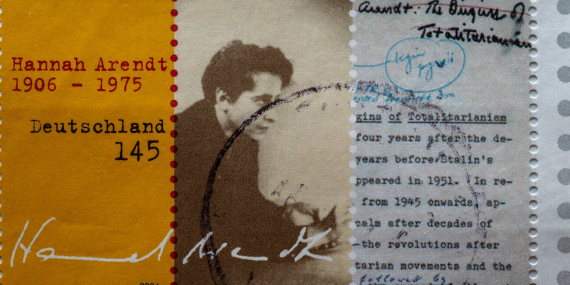 Hannah Arendt
1906 - 1975
Deutschland
145
Hannah Arendt
Arendt: The Origins of
Totalitarianism
gins of Totalitarianism
four years after the de-
years before Stalin's
ppeared in 1951. In re-
from 1945 onwards, ap-
calm after decades of
the revolutions after
tarian movements and the
followed by